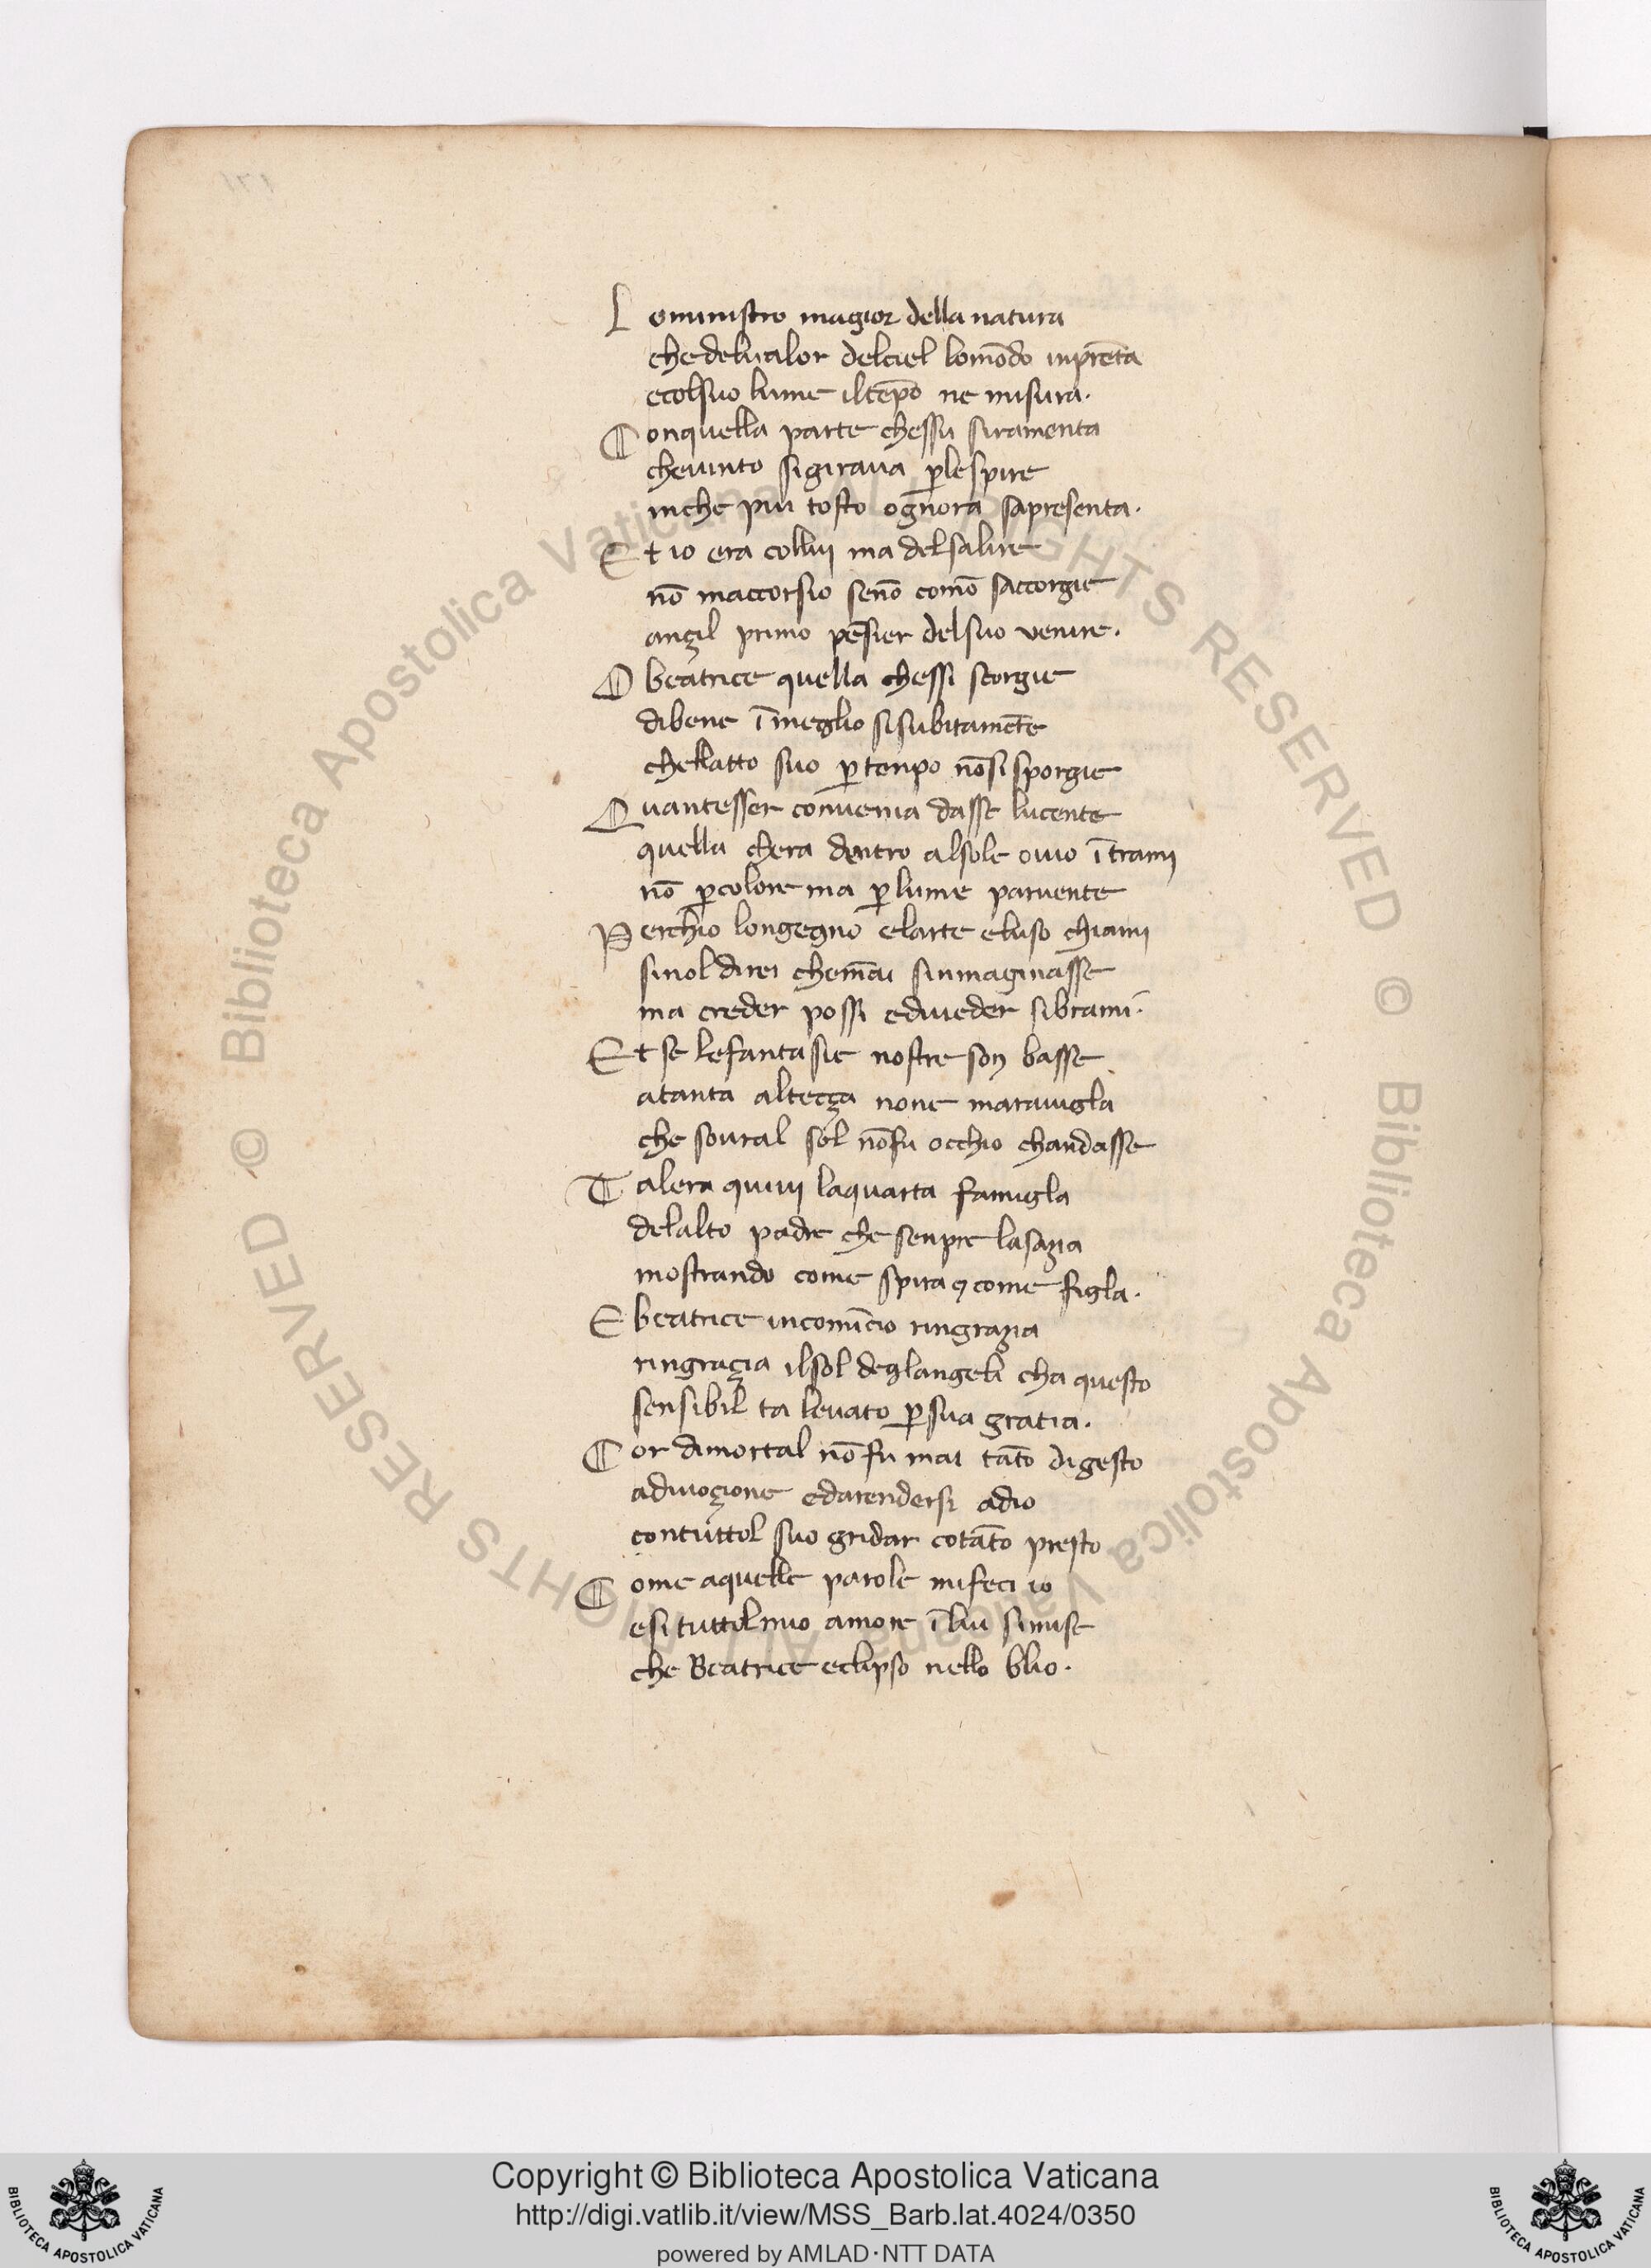 Lo ministro magior della natura
che delualor delciel lomōdo inprēta
ecolsuo lume iltēpo ne misura.
Conquella parte chessu siramenta
cheuinto sigiraua ꝑlespire
inche piu tosto ognora sapresenta.
Et io era collui ma delsalire
nō maccorsio senō comō saccorgie
anzil primo pēsier delsuo uenire.
O beatrice quella chessi scorgie
dibene ī meglio sisubitamēte
chellatto suo ꝑ tenpo nōsi sporgie
Quantesser conuenia dasse lucente
quella chera dentro alsole ouio ītrami
nō ꝑcolore ma ꝑ lume paruente
Perchio longegno elarte eluso chiami
sinol direi chemai sinmaginasse
ma creder possi ediueder sibrami.
Et se lefantasie nostre son basse
atanta altecça none marauigla
che soural sol nōfu occhio chandasse
Talera quiui laquarta famigla
delalto padre che senpre lasazia
mostrando come spira ⁊ come figla.
E beatrice incomīcio ringrazia
ringraçia ilsol deglangeli cha questo
sensibil ta leuato ꝑsua gratia.
Cor dimortal nō fu mai tāto digesto
adiuoçione edarendersi adio
contuttol suo gridar cotāto presto
Come aquelle parole mifeci io
esi tuttolmio amore ī lui simise
che Beatrice eclipso nello blio.
Copyright © Biblioteca Apostolica Vaticana
http://digi.vatlib.it/view/MSS_Barb.lat.4024/0350
powered by AMLAD·NTT DATA
BIBLIOTECA APOSTOLICA VATICANA
BIBLIOTECA APOSTOLICA VATICANA
© Biblioteca Apostolica Vaticana ALL RIGHTS RESERVED
© Biblioteca Apostolica Vaticana ALL RIGHTS RESERVED